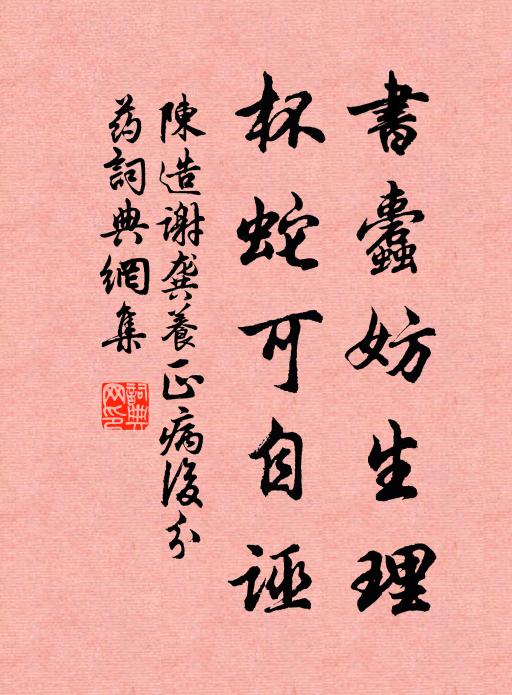 書蠹妨生理
杯蛇可自誣
陳造謝龔養正病後分
药詞典網集
詞典網印